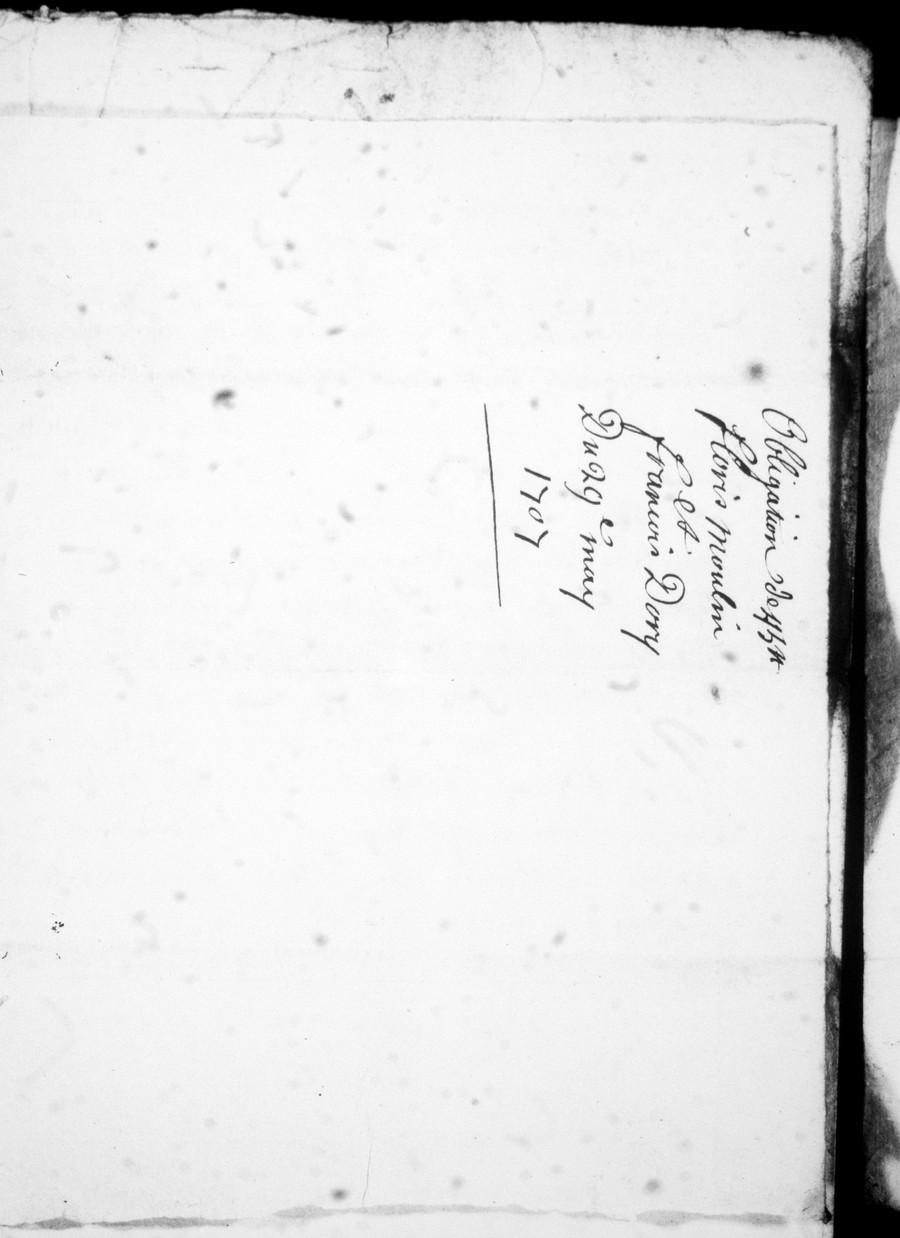 Obligation de 45 tt
floris moulin
et
francois Dory
Du 29 e may
1707